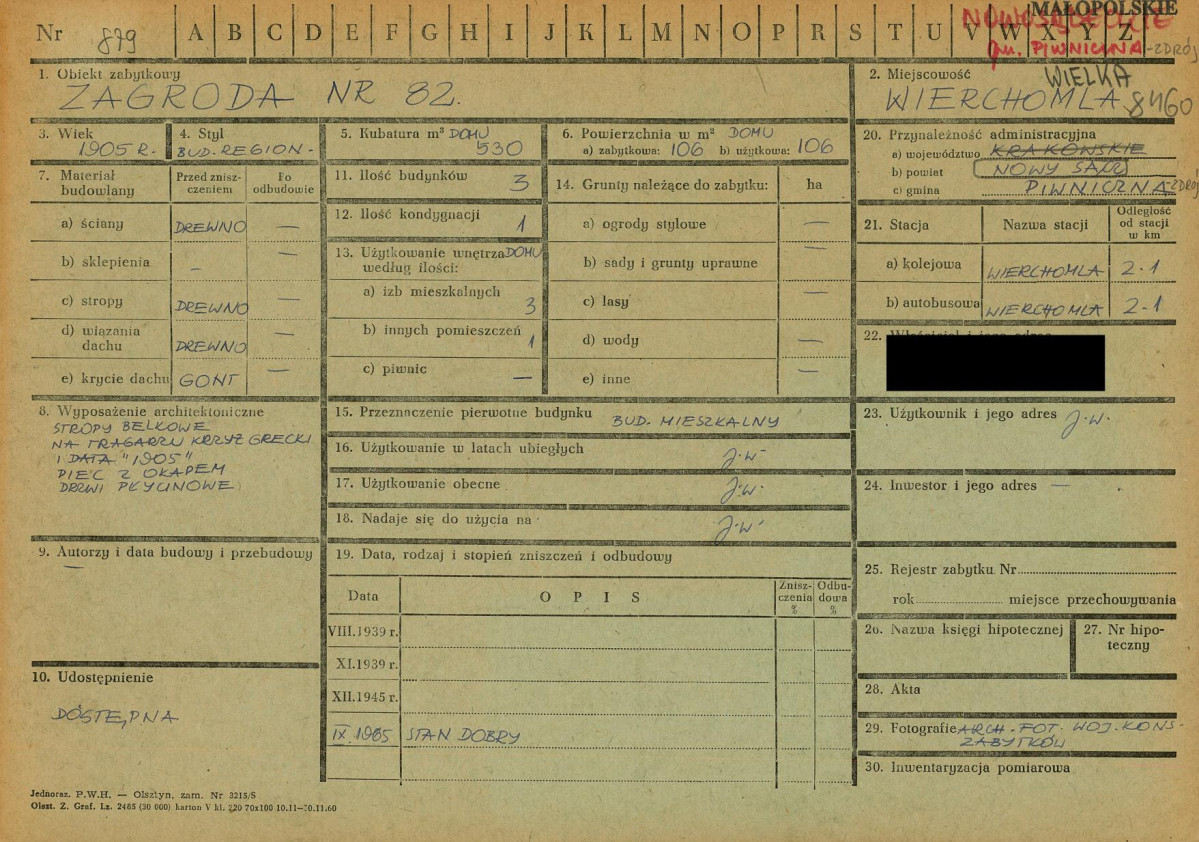 MAŁOPOLSKIE
NOWOSĄDECKIE
Nr 879 A B C D E F G H I J K L M N O P R S T U V W X Y Z
gm. PIWNICZNA-ZDRÓJ
1. Obiekt zabytkowy
ZAGRODA NR 82.
2. Miejscowość
WIELKA
WIERCHOMLA 8460
3. Wiek
1905 R.
4. Styl
BUD. REGION.
5. Kubatura m³ DOMU
530
6. Powierzchnia w m² DOMU
a) zabytkowa: 106 b) użytkowa: 106
20. Przynależność administracyjna
a) województwo KRAKOWSKIE
b) powiat NOWY SĄCZ
c) gmina PIWNICZNA-ZDRÓJ
7. Materiał budowlany
Przed zniszczeniem
Po odbudowie
a) ściany DREWNO —
b) sklepienia – —
c) stropy DREWNO —
d) wiązania dachu DREWNO —
e) krycie dachu GONT —
11. Ilość budynków 3
12. Ilość kondygnacji 1
13. Użytkowanie wnętrza DOMU
według ilości:
a) izb mieszkalnych 3
b) innych pomieszczeń 1
c) piwnic —
14. Grunty należące do zabytku: ha
a) ogrody stylowe —
b) sady i grunty uprawne —
c) lasy —
d) wody —
e) inne —
21. Stacja
Nazwa stacji
Odległość od stacji w km
a) kolejowa WIERCHOMLA 2.1
b) autobusowa WIERCHOMLA 2.1
22. Właściciel i jego adres
8. Wyposażenie architektoniczne
STROPY BELKOWE
NA TRAGARZU KRZYŻ GRECKI
I DATA "1905"
PIEC Z OKAPEM
DRZWI PŁYCINOWE
15. Przeznaczenie pierwotne budynku BUD. MIESZKALNY
16. Użytkowanie w latach ubiegłych J.w.
17. Użytkowanie obecne J.w.
18. Nadaje się do użycia na J.w.
23. Użytkownik i jego adres J.w.
24. Inwestor i jego adres —
9. Autorzy i data budowy i przebudowy
—
19. Data, rodzaj i stopień zniszczeń i odbudowy
Data OPIS Zniszczenia % Odbudowa %
VIII.1939 r.
XI.1939 r.
XII.1945 r.
IX.1965 STAN DOBRY
25. Rejestr zabytku Nr
rok miejsce przechowywania
26. Nazwa księgi hipotecznej
27. Nr hipoteczny
28. Akta
29. Fotografie ARCH. FOT. WOJ. KONS.
ZABYTKÓW
30. Inwentaryzacja pomiarowa
10. Udostępnienie
DOSTĘPNA
Jednoraz. P.W.H. — Olsztyn, zam. Nr 3215/S
Olszt. Z. Graf. Lz. 2485 (30 000) karton V kl. 220 70x100 10.11—30.11.60